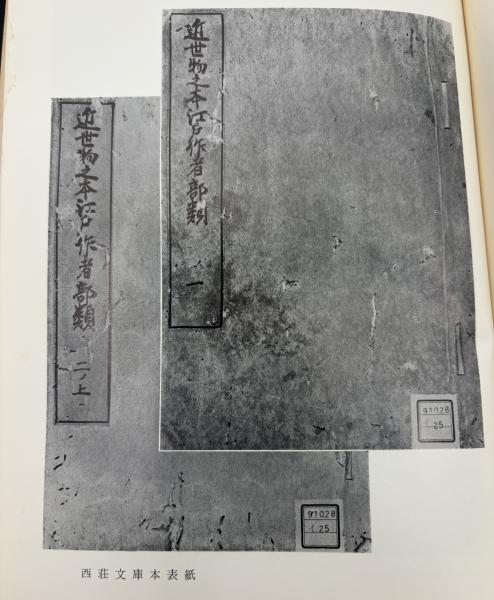 近世物之本江戸作者部類
一
91028
イ25
近世物之本江戸作者部類
二ノ上
91028
イ25
西荘文庫本表紙